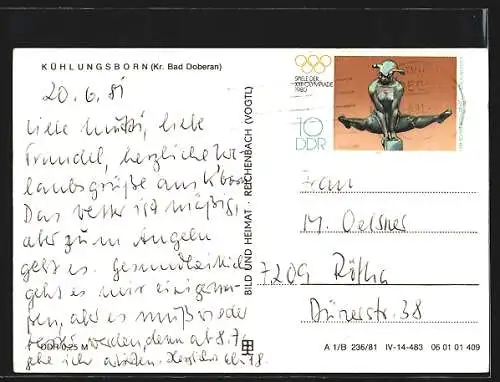 KÜHLUNGSBORN (Kr. Bad Doberan)
20.6.81
Liebe Mutti, liebe
Traudel, herzliche Ur-
laubsgrüße aus K'born
Das Wetter ist mäßig,
aber zum Angeln
geht es. Gesundheitlich
geht es mir einigerma-
ßen, aber es muß wieder
werden, denn ab 8.7.
gehe ich arbeiten.
DDR 0,25 M
BILD UND HEIMAT · REICHENBACH (VOGTL)
SPIELE DER
XXII. OLYMPIADE
1980
10
DDR
Frau
M. Oelsner
7209 Rötha
Dürerstr. 38
A 1/B 236/81 IV-14-483 06 01 01 409